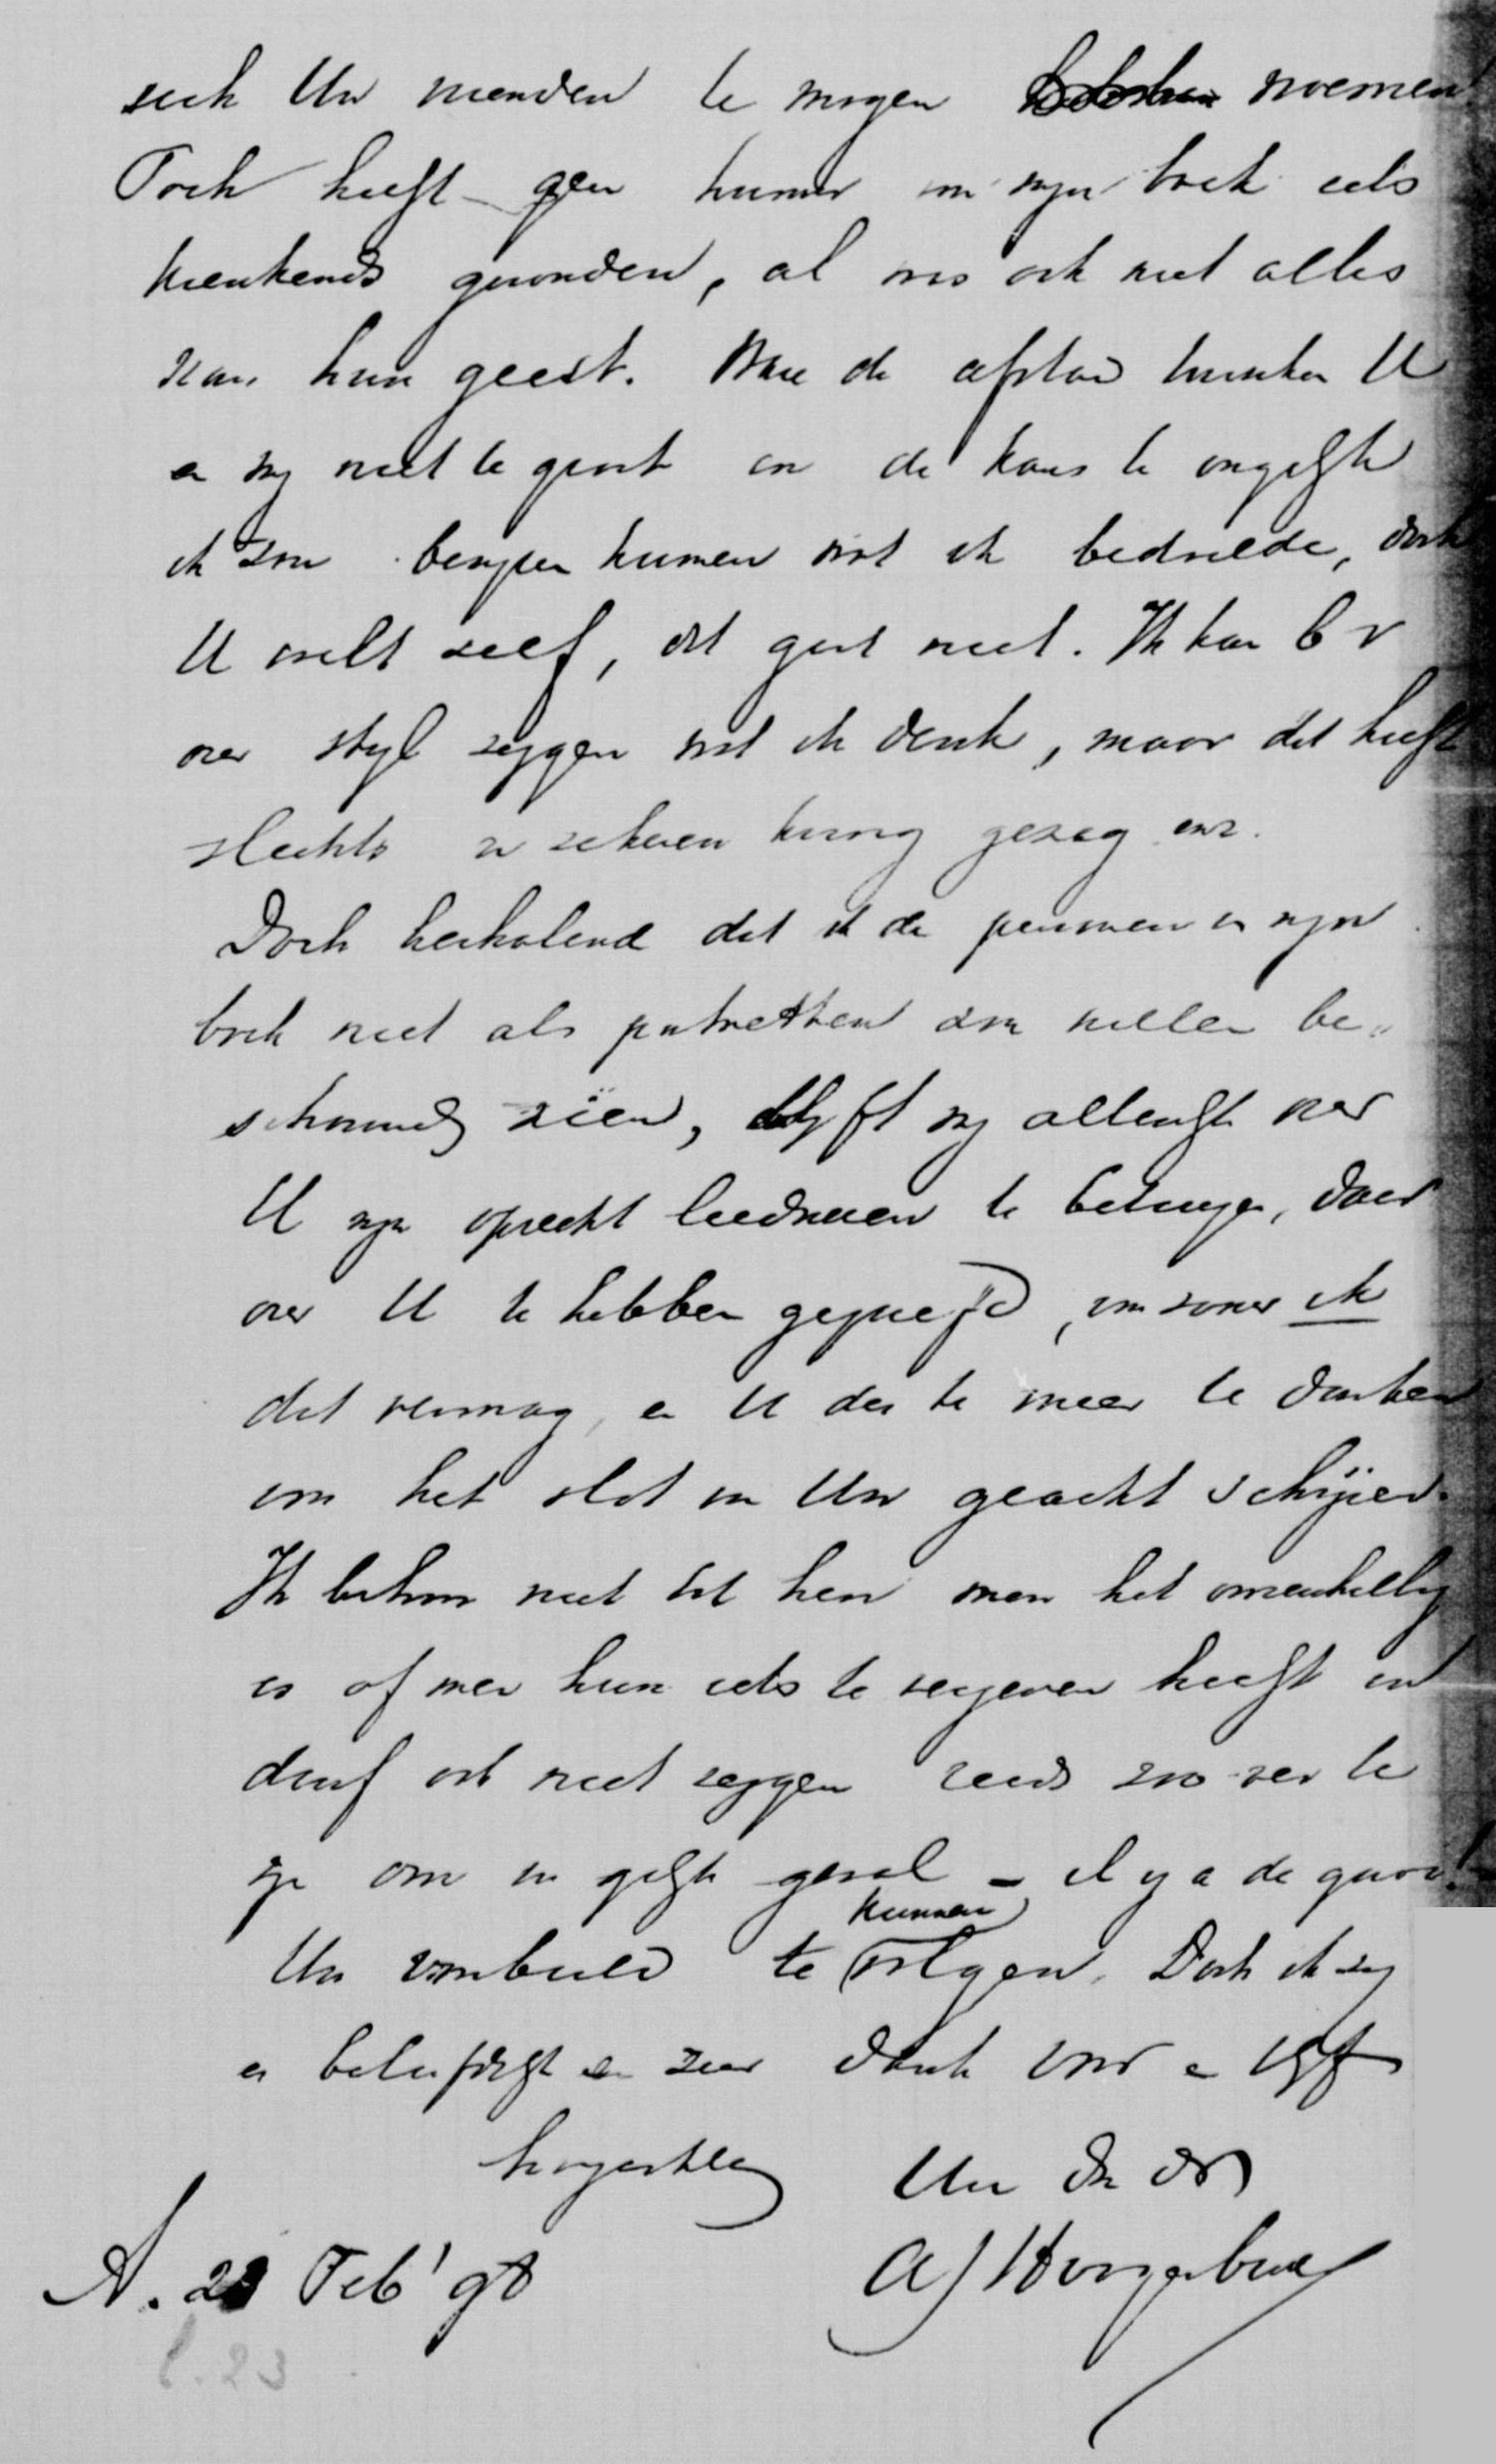 zich Uw vrienden te mogen noemen
Toch heeft geen hunner in myn boek iets
krenkends gevonden, al was ook niet alles
van hun geest. Ware de afstand tusschen U
en my niet te groot en de kans te ongelyk
ik zou bewyzen kunnen wat ik bedoelde, doch
U voelt zelf, dit gaat niet. Ik kan b v
over styl zeggen wat ik denk, maar dit heeft
slechts in zekeren kring gezag enz.
Doch herhalend dat ik de personen in myn
boek niet als portretten zou willen be„
schouwd zien, blyft my allengs over
U myn oprecht leedwezen te betuigen, daar
over U te hebben gegriefd, in zoover ik
dat vermag, en U des te meer te danken
om het slot van Uw geacht schrijven.
Ik behoor niet tot hen wien het onverschillig
is of men hun iets te vergeven heeft en
durf ook niet zeggen reeds zoo ver te
zyn om in gelyk geval – il y a de quoi! –
Uw voorbeeld te kunnen volgen. Doch ik zeg
er beleefdelyk en zeer dank voor en blyf
hoogachtend Uw dw dr
A. 23 Feb '98 A J
l. 23